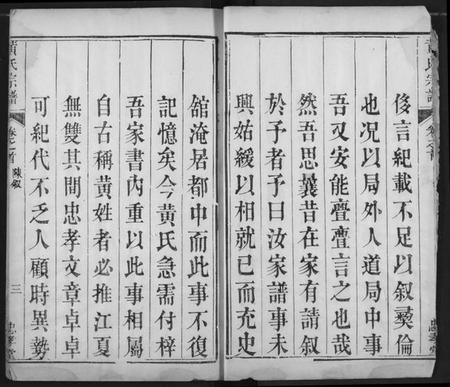 黃氏宗譜
卷之首
侈言紀載不足以叙彛倫
也况以局外人道局中事
吾又安能亹亹言之也哉
然吾思曩昔在家有請叙
於予者予曰汝家譜事未
興始緩以相就已而充史
館淹居都中而此事不復
記憶矣今黃氏急需付梓
吾家書内重以此事相屬
自古稱黃姓者必推江夏
無雙其間忠孝文章卓卓
可紀代不乏人顧時異勢
黃氏宗譜
卷之首
陳叙
三
忠孝堂